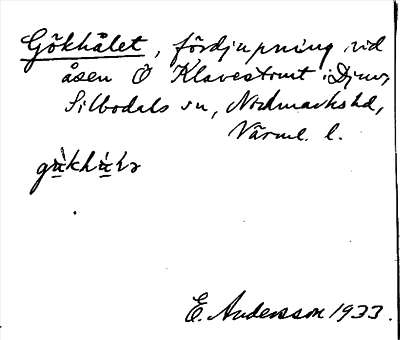 Gökhålet, fördjupning vid
åsen Ö Klavestomt i Djur,
Silbodals sn, Nordmarks hd,
Värml. l.
E. Andersson 1933.